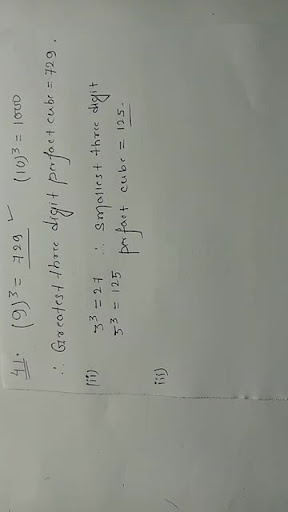 41. (9)³ = 729 ✓ (10)³ = 1000
∴ Greatest three digit perfect cube = 729.
(ii) 3³ = 27 ∴ smallest three digit
5³ = 125 perfect cube = 125.
iii)